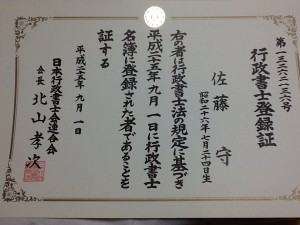 行政書士登録証
佐藤守
昭和二十六年七月二十四日生
右の者は行政書士法の規定に基づき
平成二十五年九月一日に行政書士
名簿に登録された者であることを
証する
平成二十五年九月一日
日本行政書士会連合会
会長 北山孝次